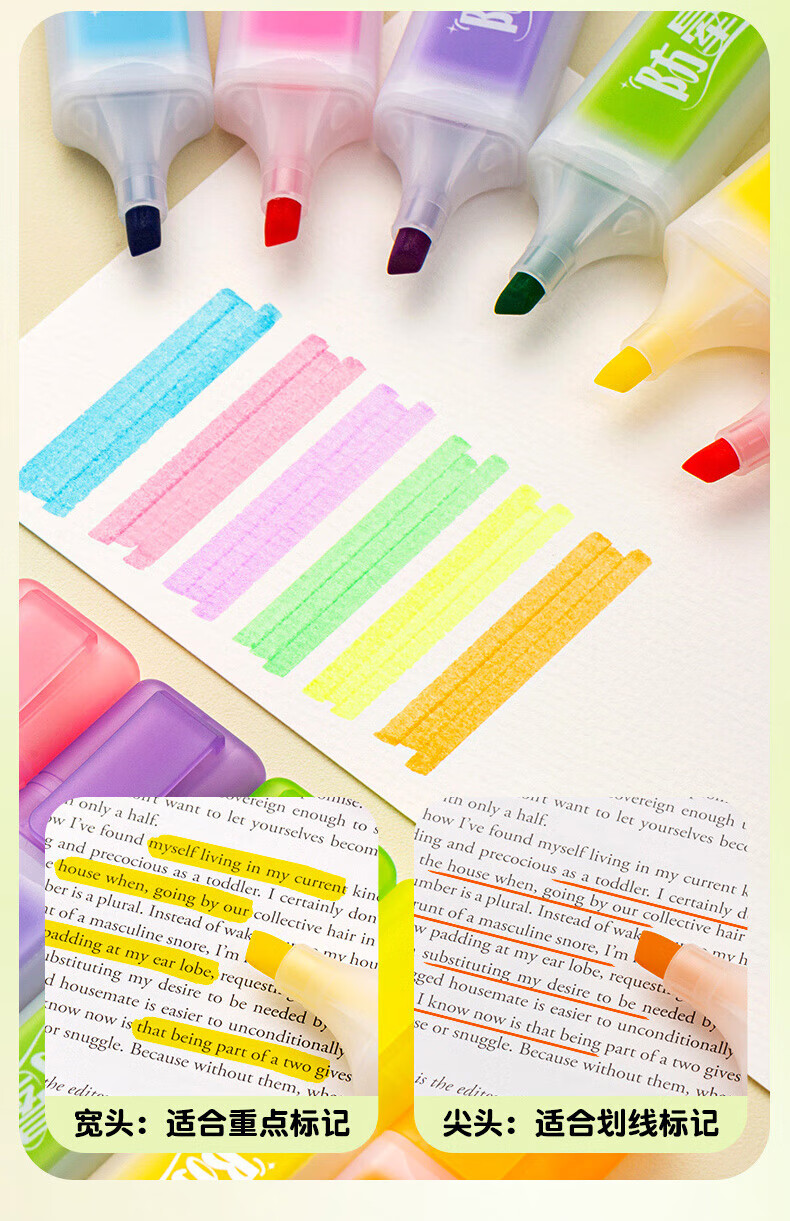 防
防墨
only a half.
want to let yourselves becom
how I've found myself living in my current kin
g and precocious as a toddler. I certainly don
e house when, going by our collective hair in
ber is a plural. Instead of wak
nt of a masculine snore, I'm
my hou
padding at my ear lobe, request
ubstituting my desire to be needed by
d housemate is easier to unconditionally
now now is that being part of a two gives
or snuggle. Because without them, whe
the editor
宽头：适合重点标记
th only a half.
overeign enough t
want to let yourselves bec
how I've found myself living in my current k
ding and precocious as a toddler. I certainly d
the house when, going by our collective hair
umber is a plural. Instead of wak
runt of a masculine snore, I'm
my h
w padding at my ear lobe, request
substituting my desire to be needed by
ged housemate is easier to unconditionally
I know now is that being part of a two gives
se or snuggle. Because without them, wh
is the editor
尖头：适合划线标记